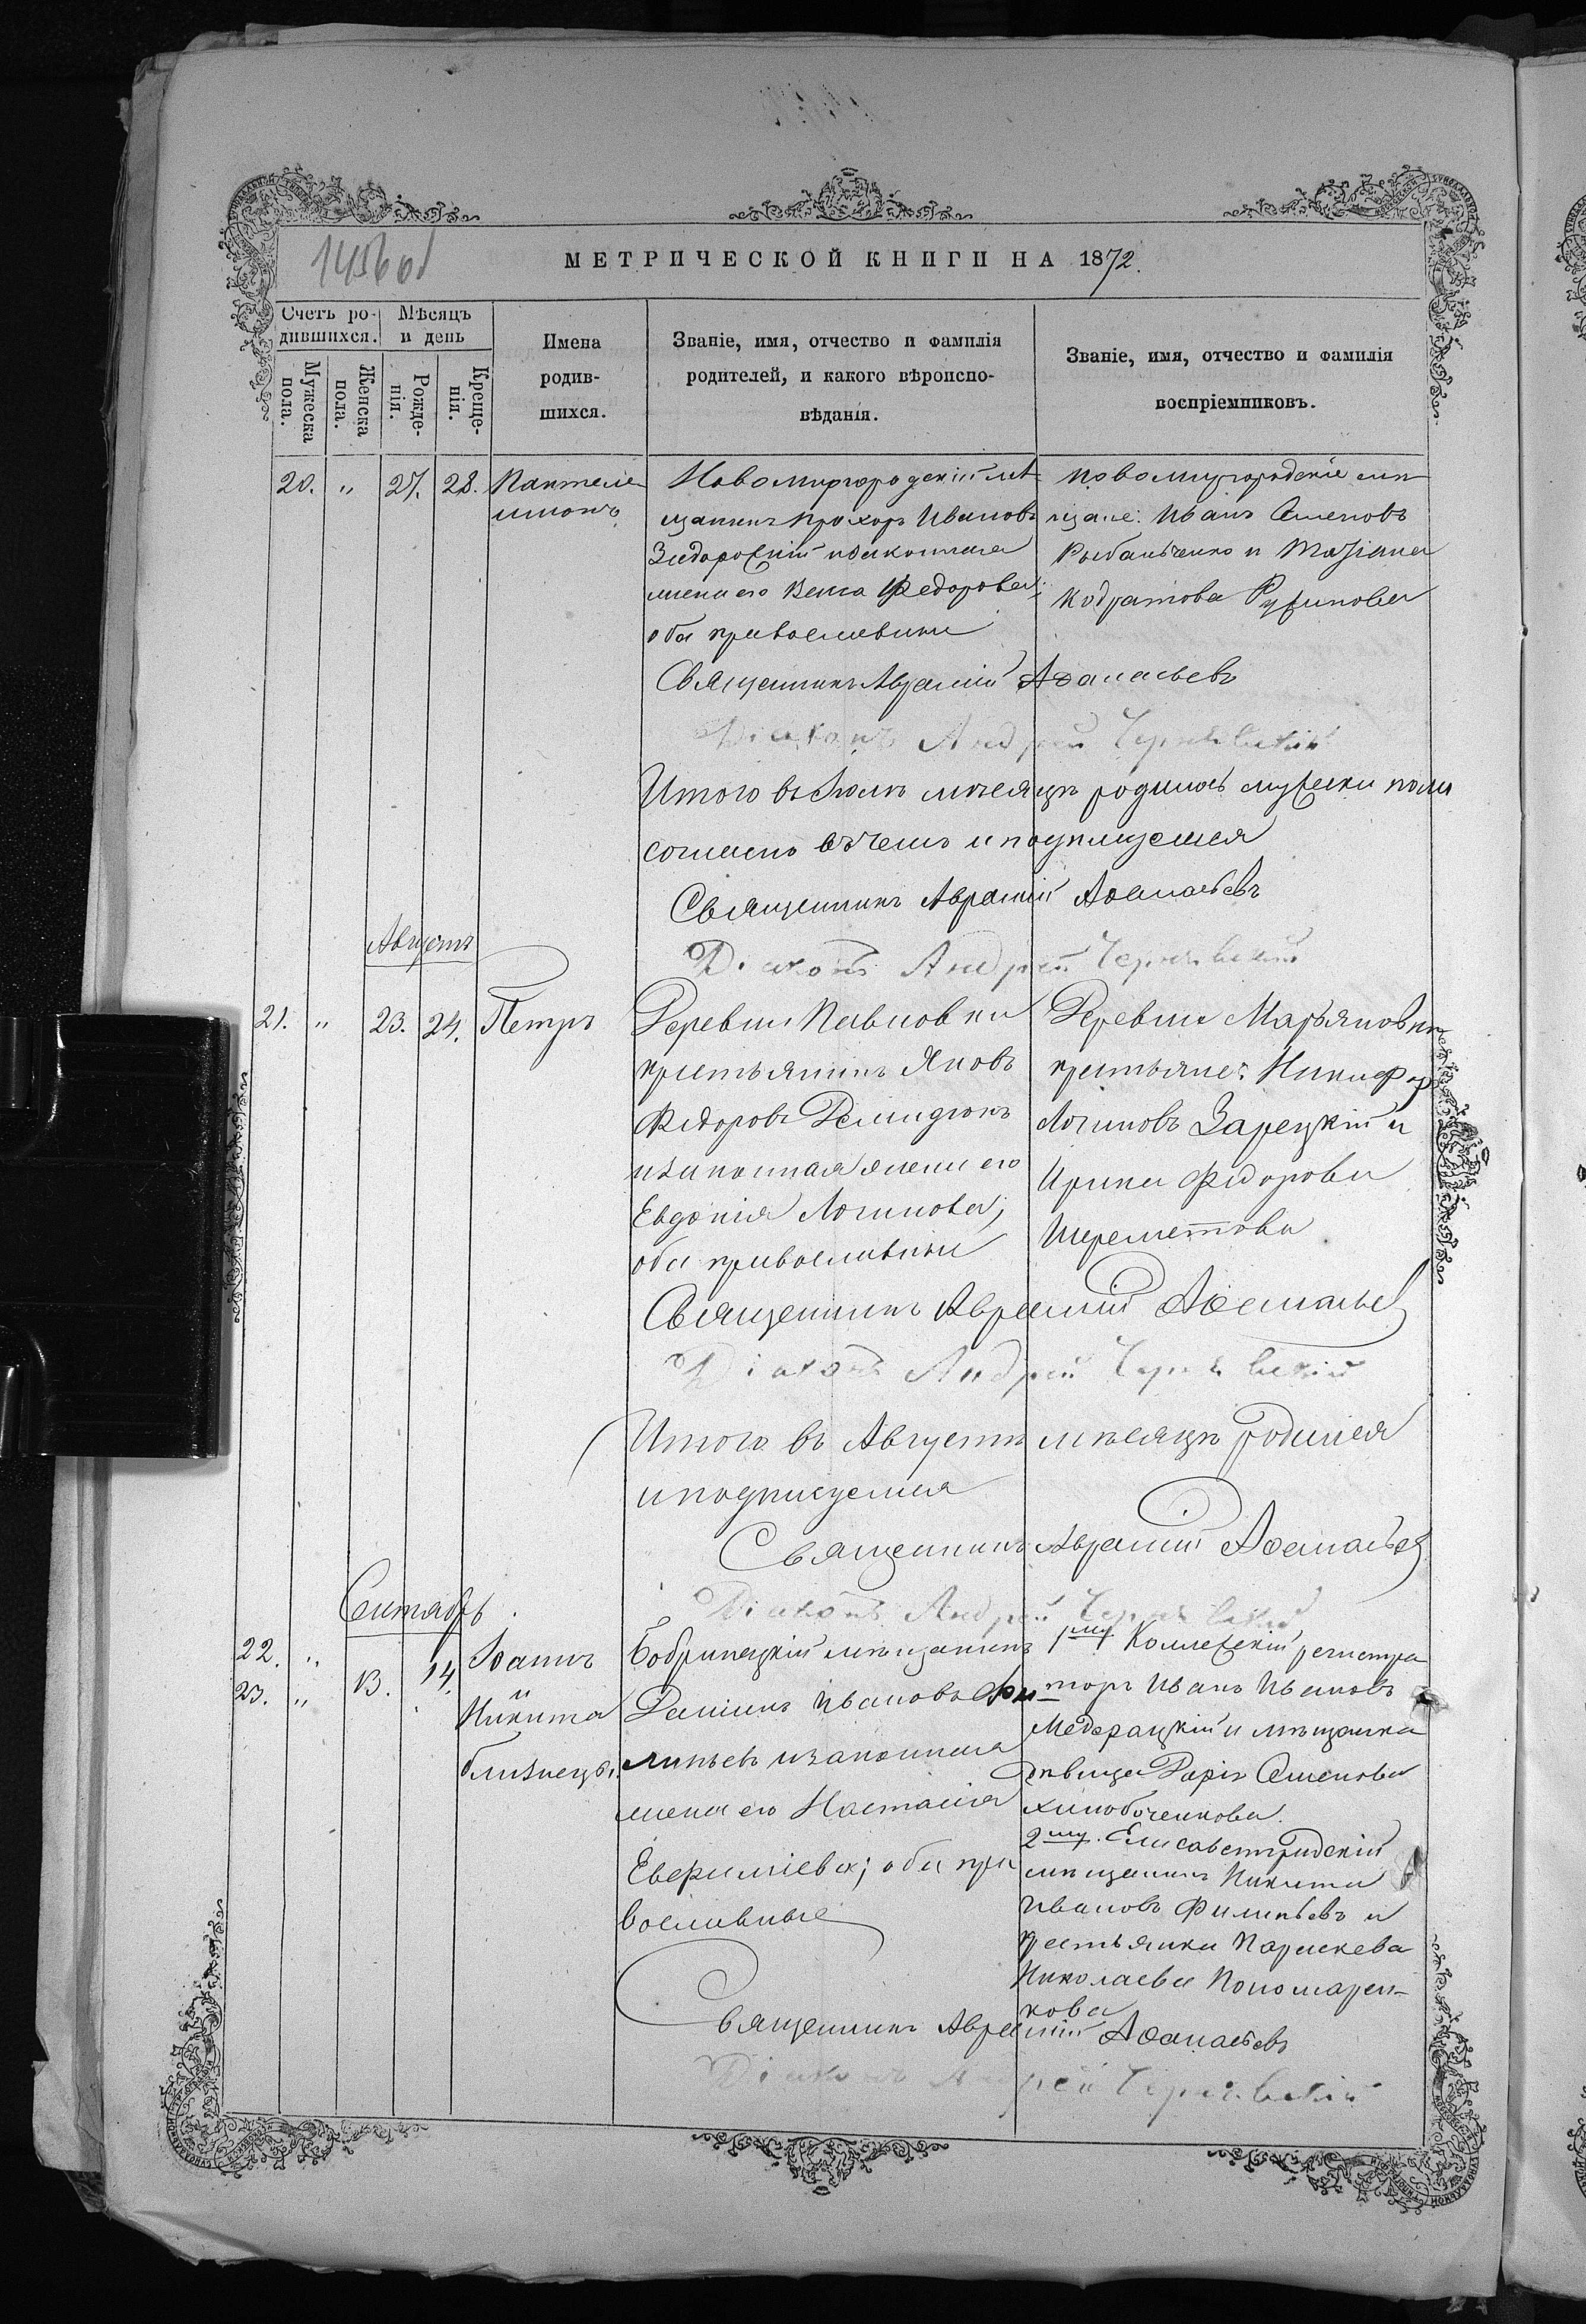 1456 об
МЕТРИЧЕСКОЙ КНИГИ НА 1872.
Счетъ ро-
дившихся.
Мѣсяцъ
и день
Мужеска
пола.
Женска
пола.
Рожде-
нія.
Креще-
нія.
Имена
родив-
шихся.
Званіе, имя, отчество и фамилія
родителей, и какого вѣроиспо-
вѣданія.
Званіе, имя, отчество и фамилія
воспріемниковъ.
20. „ 27. 28.
Пантеле
имонъ
Новомиргородскій мѣ
щанинъ Прохоръ Ивановъ
и законная
жена его Ѳедорова;
оба православные
Новомиргородскіе мѣ
щане: Иванъ Семеновъ
Рыбальченко и
Кодратова
Священникъ Аврамій Аѳанасьевъ
Діаконъ Андрей Чернявскій
Итого въ Іюлѣ мѣсяцѣ родилось мужеска пола
согласно въ чемъ и подпишемся
Священникъ Аврамій Аѳанасьевъ
Діаконъ Андрей Чернявскій
Августъ
21. „ 23. 24.
Петръ
Деревни Павловки
крестьянинъ Яковъ
Ѳедоровъ Демидюкъ
и законная жена его
Евдокія Логинова;
оба православные
Деревни Марьяновки
крестьяне: Никифоръ
Логиновъ Зарецкій и
Ирина Ѳедорова
Шереметова
Священникъ Аврамій Аѳанасьев
Діаконъ Андрей Чернявскій
Итого въ Августѣ мѣсяцѣ родился
и подпишемся
Священникъ Аврамій Аѳанасьев
Діаконъ Андрей Чернявскій
Сентябрь
22. „
23. „
13. 14.
Іоаннъ
и
Никита
близнецы.
Бобринецкій мѣщанинъ
Даніилъ Ивановъ Фи
липьевъ и законная
жена его Настасія
Евфиміева; оба пра
вославные
1му Коллежскій регистра
торъ Иванъ Ивановъ
и мѣщанка
дѣвица Дарія Семенова
2му. Елисаветградскій
мѣщанинъ Никита
Ивановъ Филипьевъ и
крестьянка Параскева
Николаева Пономарен-
кова
Священникъ Аврамій Аѳанасьевъ
Діаконъ Андрей Чернявскій